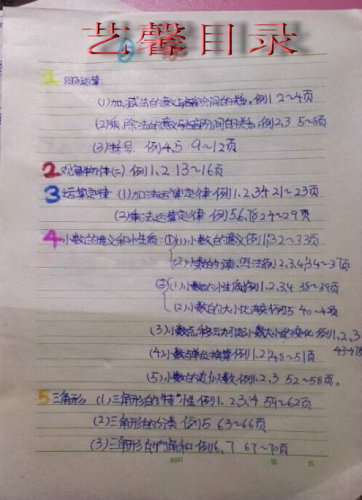 艺馨目录
1 四则运算
(1)加、减法的意义与各部分间的关系。例1 2~4页
(2)乘、除法的意义与各部分间的关系。例2,3 5~8页
(3)括号 例4,5 9~12页
2 观察物体(二) 例1,2 13~16页
3 运算定律 (1)加法运算定律 例1,2,3,4 21~23页
(2)乘法运算定律 例5,6,7,8 24~29页
4 小数的意义和性质:①(1)小数的意义 例1, 32~33页
(2)小数的读、写法 例2,3,4, 34~37页
②(1)小数的性质 例1,2,3,4 38~39页
(2)小数的大小比较 例5 40~4页
(3)小数点移动引起小数大小的变化 例1,2,3
(4)小数与单位换算 例1,2, 48~51页
(5)小数的近似数 例1,2,3 52~58页。
5 三角形 (1)三角形的特性 例1,2,3,4 59~62页
(2)三角形的分类 例5 63~66页
(3)三角形的内角和 例6,7 67~70页